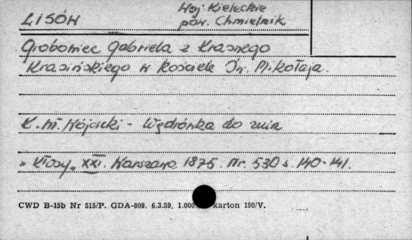 LISÓW
Woj. Kieleckie
pow. Chmielnik
Grobowiec Gabriela z Krasnego
Krasińskiego w kościele Św. Mikołaja.
K. Wł. Wójcicki - Wędrówka do
"Kłosy" XXI. Warszawa 1875. Nr. 530 s. 140-141.
CWD B-15b Nr 515/P. GDA-809. 6.3.59. 1.000 karton 180/V.